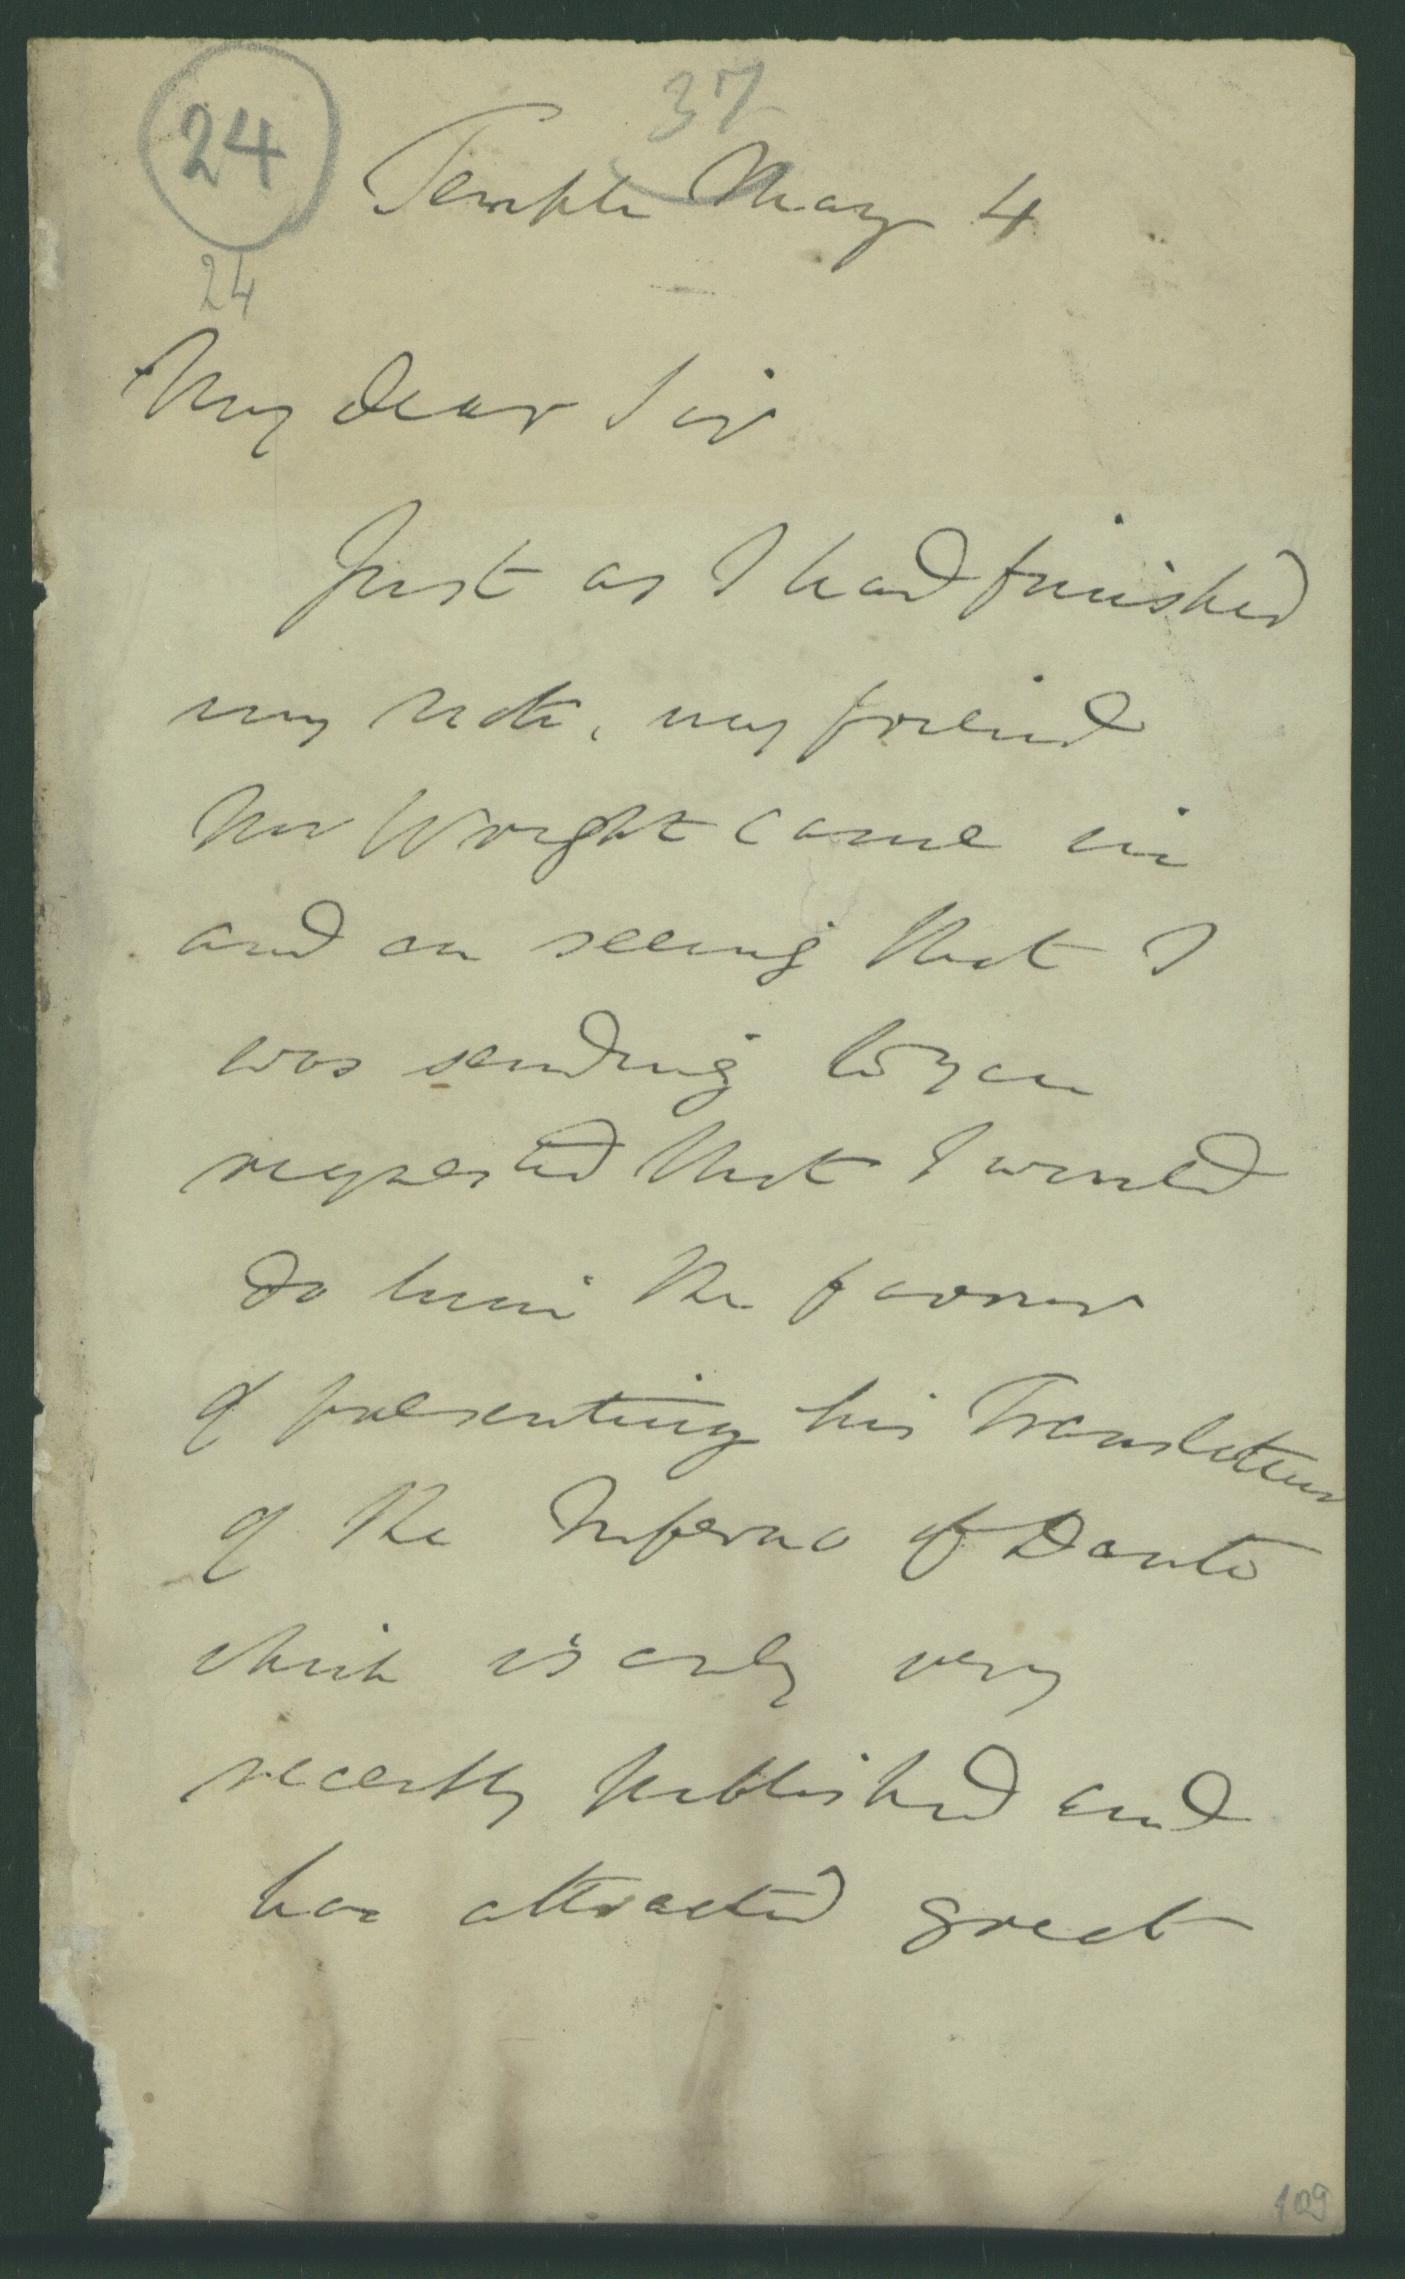 24
37
Temple May 4
24
My dear Sir
Just as I had finished
my note, my friend
Mr Wright came in
and on seeing that I
was sending to you
requested that I would
do him the favour
of presenting his Translation
of the Inferno of Dante
which is only very
recently published and
has attracted great
109